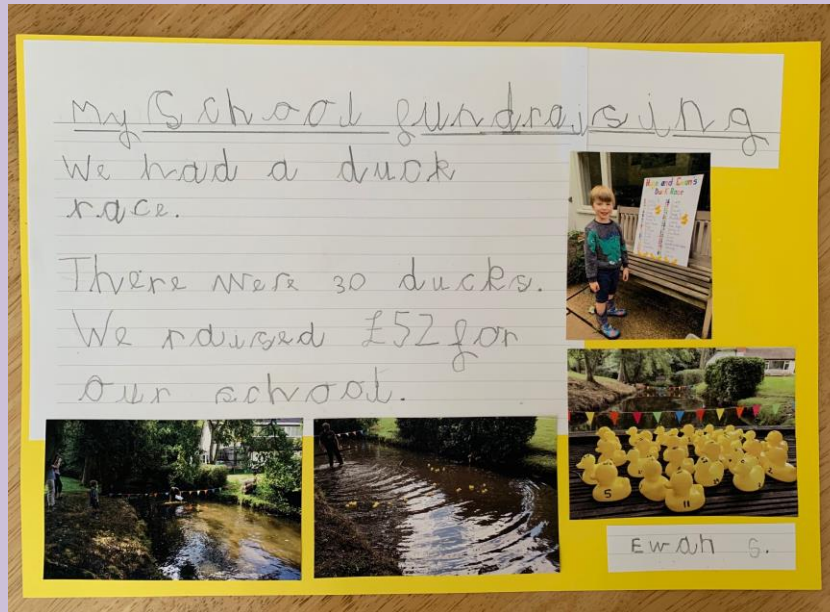 My School fundraising
We had a duck
race.
There were 30 ducks.
We raised £52 for
our school.
Duck Race
5
11
Ewan S.